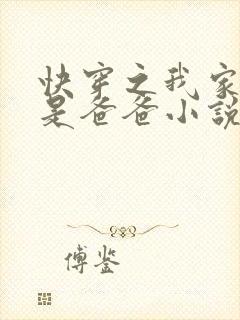 快穿之我家
是爸爸小說
傅鉴